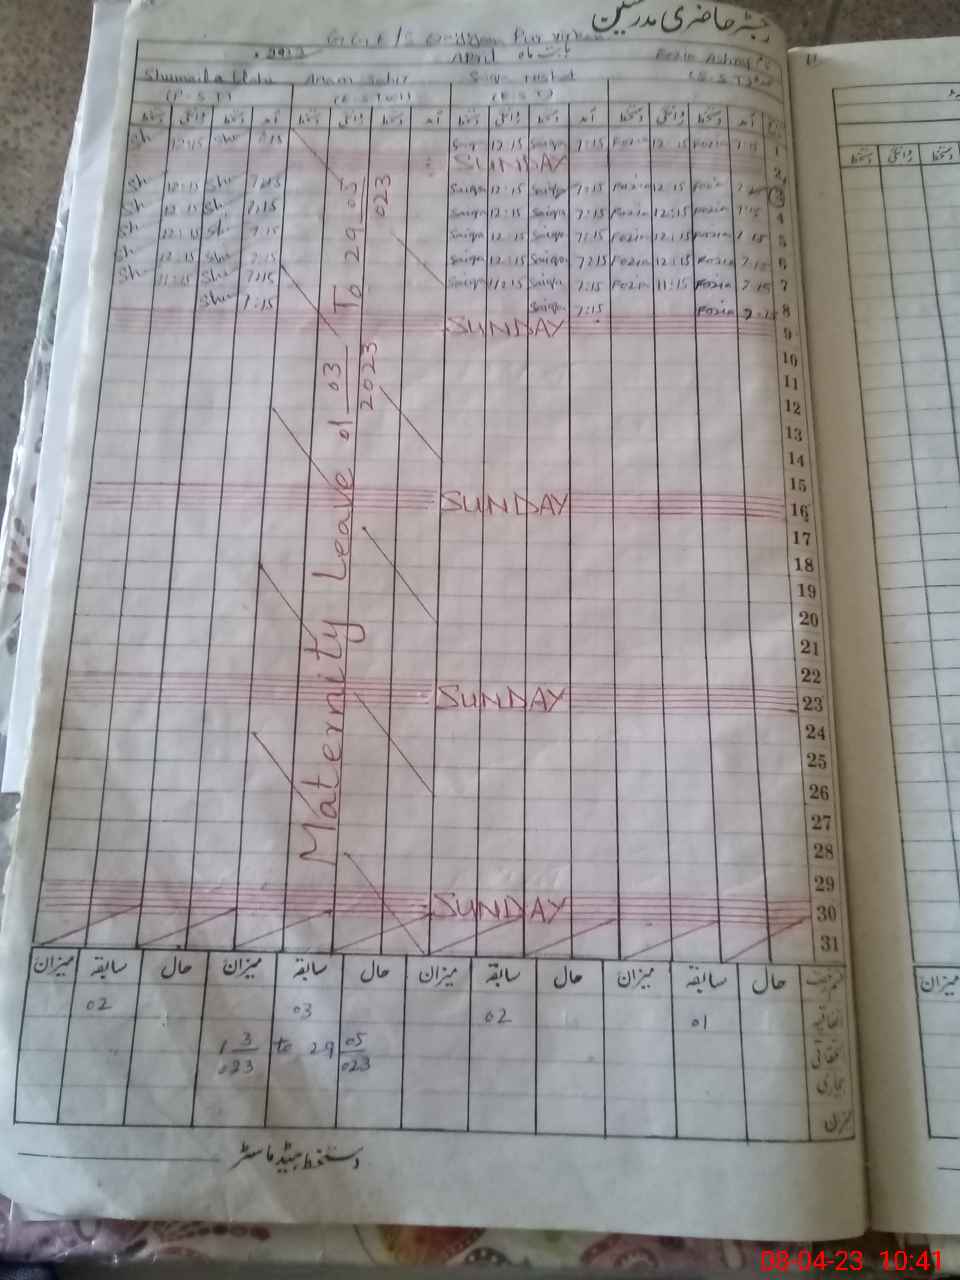 رجسٹر حاضری مدرسین
April بابت ماہ
Anam
(P.S.T) (E.S.T) (S.S.T)
دستخط روانگی دستخط آمد دستخط روانگی دستخط آمد دستخط روانگی دستخط آمد دستخط روانگی دستخط آمد
Sh 12:15 Sh 7:15 Saiqa 12:15 Saiqa 7:15 Fozia 12:15 Fozia 7:15 1
SUNDAY 2
Sh 12:15 Sh 7:15 Saiqa 12:15 Saiqa 7:15 Fozia 12:15 Fozia 3
Sh 12:15 Sh 7:15 Saiqa 12:15 Saiqa 7:15 Fozia 12:15 Fozia 7:15 4
Sh 12:15 Sh 7:15 Saiqa 12:15 Saiqa 7:15 Fozia 12:15 Fozia 7:15 5
Sh 12:15 Sh 7:15 Saiqa 12:15 Saiqa 7:15 Fozia 12:15 Fozia 7:15 6
Sh 11:15 Sh 7:15 Saiqa 11:15 Saiqa 7:15 Fozia 11:15 Fozia 7:15 7
Sh 7:15 Saiqa 7:15 Fozia 7:15 8
SUNDAY 9
10
11
12
13
14
15
SUNDAY 16
17
18
19
20
21
22
SUNDAY 23
24
25
26
27
28
29
SUNDAY 30
31
Maternity Leave 01 03 2023 To 29 05 023
میزان سابقہ حال میزان سابقہ حال میزان سابقہ حال میزان سابقہ حال
02 03 02 01 اتفاقیہ
1 3 023 to 29 05 023
بیماری
دستخط ہیڈ ماسٹر
میزان
08-04-23 10:41